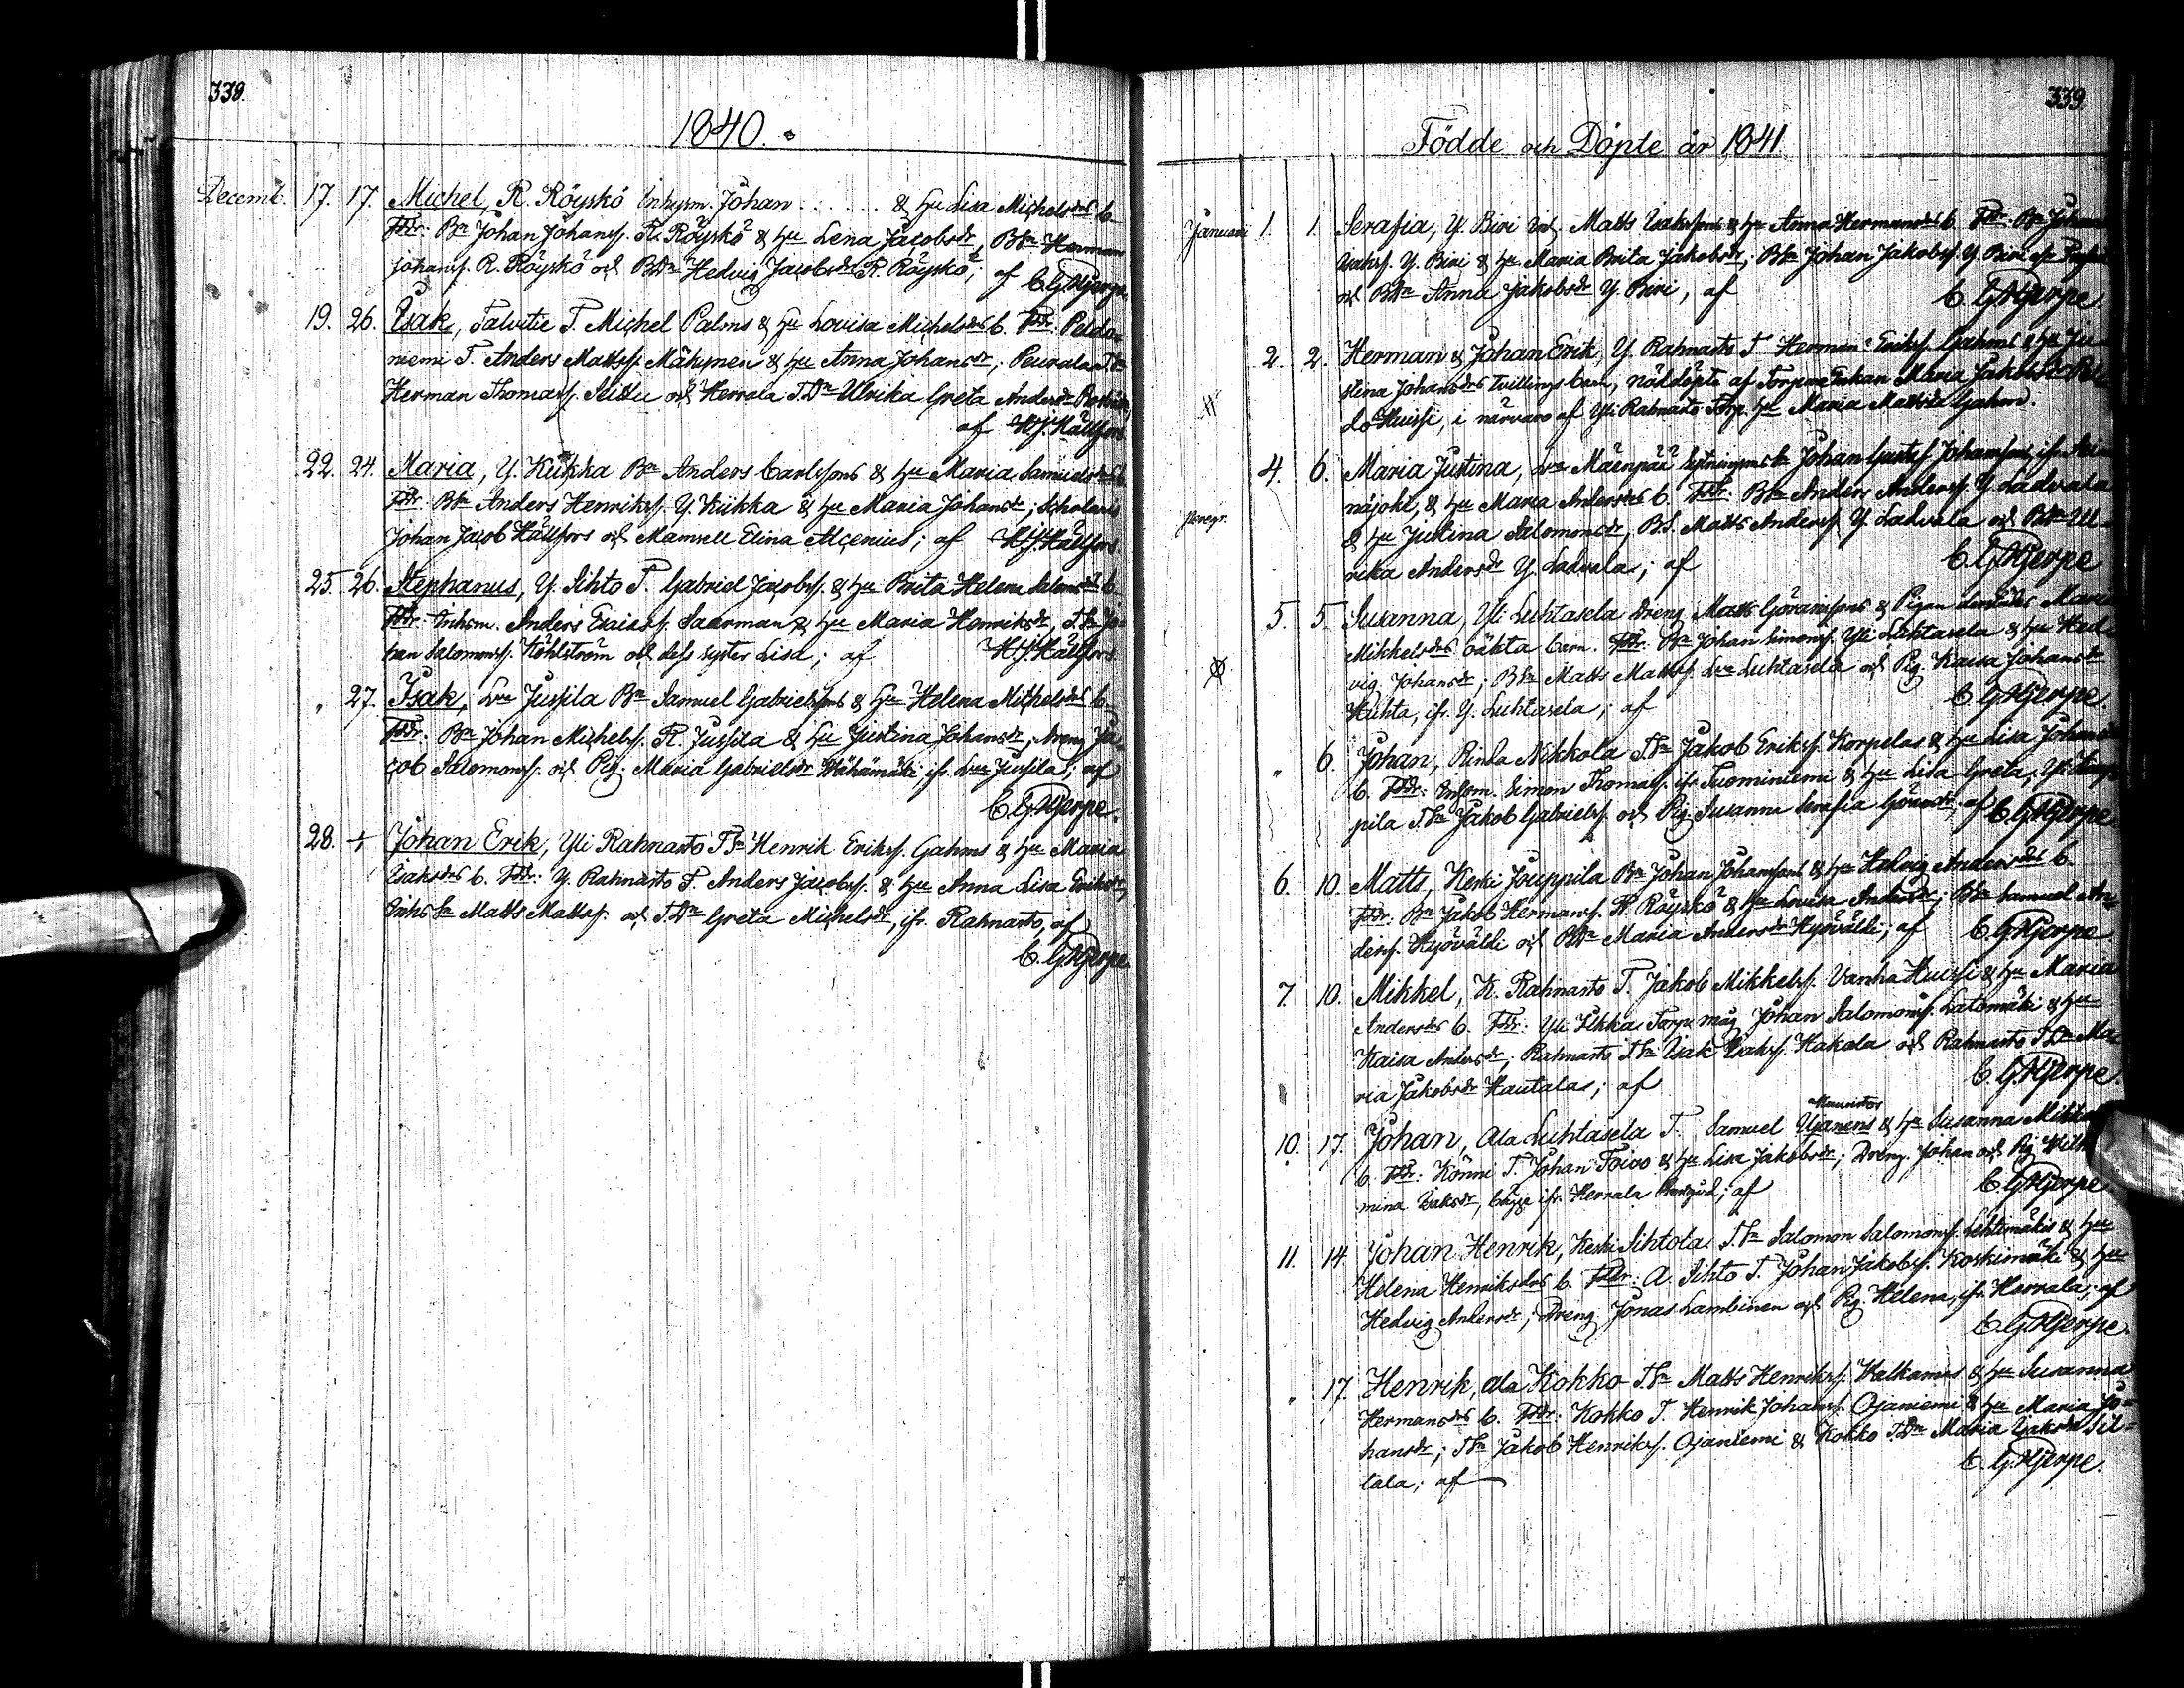 338.
1840.
Decemb. 17. 17. Michel, R. Röyskö Inhysm. Johan ...... & Hu Lisa Michelsdrs b.
Fddr: Bn Johan Johanss. R. Röyskö & Hu Lena Jacobsdr, BSn Herman
Johanss. R. Röyskö och BDn Hedvig Jacobsdr R. Röyskö; af C. G. Hjerpe
19. 26. Isak, Talvitie T. Michel Palms & Hu Lovisa Michelsdrs b. Fddr: Peldo-
niemi T. Anders Mattss. Mähynen & Hu Anna Johansdr; Peurala TSn
Herman Thomass. och Herrala T.Dn Ulrika Greta Andersdr
af H J. Hällfors
22. 24. Maria, Y. Kiikka Bn Anders Carlssons & Hu Maria Samuelsdrs b.
Fddr: BSn Anders Henrikss. Y. Kiikka & Hu Maria Johansdr; Scholaris
Johan Jacob Hällfors och Mamsell Elina Alcenius; af H J. Hällfors
25. 26. Stephanus, Y. Sihto T. Gabriel Jacobss. & Hu Brita Helena Salomsdrs b.
Fddr: Inhsm. Anders Esaiass. Saarman & Hu Maria Henriksdr, T.Sn Jo-
han Salomonss. Köhlström och dess syster Lisa; af H J. Hällfors
" 27. Isak, Lva Jussila Bn Samuel Gabrielssons & Hu Helena Michelsdrs b.
Fddr: Bn Johan Michelss. R. Jussila & Hu Justina Johansdr, dreng Ja-
cob Salomonss. och Pig. Maria Gabrielsdr Wähämäki ifr. Lva Jussila; af
C. G. Hjerpe.
28. + Johan Erik, Yli Rahnasto TSn Henrik Erikss. Gahms & Hu Maria
Isaksdrs b. Fddr: Y. Rahnasto T. Anders Jacobss. & Hu Anna Lisa Eriksdr,
Inhs Sn Matts Mattss. och T.Dn Greta Michelsdr, ifr. Rahnasto, af
C. G. Hjerpe
339.
Födde och Döpte år 1841
Januari 1. 1. Serafia, Y. Biri Matts Isakssons & Hu Anna Hermansdrs b. Fddr: Bn Johan
Isakss. Y. Biri & Hu Maria Brita Jakobsdr; BSn Johan Jakobss. Y. Biri
och BDn Anna Jakobsdr Y. Biri, af C. G. Hjerpe
2. 2. Herman & Johan Erik, Y. Rahnasto T. Herman Erikss. Gahms & Hu Ju-
stina Johansdrs tvillingsbarn, nöddöpte af Torpare Enkan Maria Jakobsdr
Huissi, i närvaro af Yli Rahnasto Torp. Hu Maria Mattsdr Gahm.
4. 6. Maria Justina, Lva Mäenpää Johan Gustaf Johanssons ifr.
näjoki, & Hu Maria Andersdrs b. Fddr: BSn Anders Anderss. Y. Ladvala
peregr. & Hu Justina Salomonsdr, B.S. Matts Anderss. Y. Ladvala och BDn Ul-
rika Andersdr Y. Ladvala; af C. G. Hjerpe
5. 5. Susanna, Yli Luhtasela dreng Matts Göranssons & Pigan Maria
Mikkelsdrs oäkta barn. Fddr: Bn Johan Simonss. Yli Luhtasela & Hu Hed-
vig Johansdr; BSn Matts Mattss. Lva Luhtasela och Pig. Kaisa Johansdr
Huhta, ifr. Y. Luhtasela; af C. G. Hjerpe.
" 6. Johan, Rinta Nikkola T.Sn Jakob Erikss. Korpelas & Hu Lisa Johansdrs
b. Fddr: Inhsm. Simon Thomass. ifr. Tuominiemi & Hu Lisa Greta, Yli
pila T.Sn Jakob Gabrielss. och Pig. Susanna Serafia Göransdr, af C. G. Hjerpe.
6. 10. Matts, Keski Jouppila Bn Johan Johanssons & Hu Hedvig Andersdrs b.
Fddr: Bn Jakob Hermanss. R. Röyskö & Hu Lovisa Andersdr; BSn Samuel An-
derss. Hyövälti och BDn Maria Andersdr Hyövälti; af C. G. Hjerpe
7. 10. Mikkel, K. Rahnasto T. Jakob Mikkelss. Vanha Huissi & Hu Maria
Andersdrs b. Fddr: Yli Ilkka Torp. måg Johan Salomonss. Latomäki & Hu
Kaisa Andersdr, Rahnasto T.Sn Isak Isakss. Hakala och Rahnasto T.Dn Ma-
ria Jakobsdr Hautala; af C. G. Hjerpe.
10. 17. Johan, Ala Luhtasela T. Samuel Ujanens & Hu Susanna Mikkelsdrs
b. Fddr: Könni T. Johan Toivo & Hu Lisa Jakobsdr; Dreng. Johan och Pig Wilhel-
mina Isaksdr, bägge ifr. Herrala; af C. G. Hjerpe
11. 14. Johan Henrik, Keski Sihtola T.Sn Salomon Salomonss. Lehtimäkis & Hu
Helena Henriksdrs b. Fddr: A. Sihto T. Johan Jakobss. Koskimäki & Hu
Hedvig Andersdr; Dreng Jonas Lambinen och Pig. Helena, ifr. Herrala; af
C. G. Hjerpe.
" 17. Henrik, Ala Kokko T.Sn Matts Henrikss. Walkamas & Hu Susanna
Hermansdrs b. Fddr: Kokko T. Henrik Johanss. Ojaniemi & Hu Maria Jo-
hansdr; T.Sn Jakob Henrikss. Ojaniemi & Kokko T.Dn Maria Isaksdr Sil-
tala; af C. G. Hjerpe.